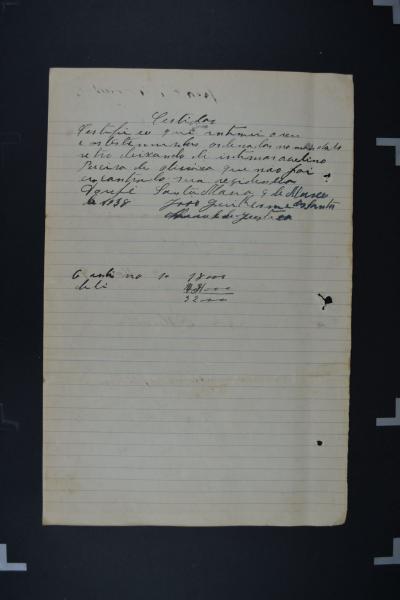 Certidão
Certifico que intimei o reu
e as testemunhas ordenadas no mandato
retro deixando de intimar avelino
Pereira de oliveira que não foi
encontrado sua residencia
Dou fé Santa Maria 9 de Março
de 1938 João Guilherme dos Santos
de Justiça
no 18000
32000